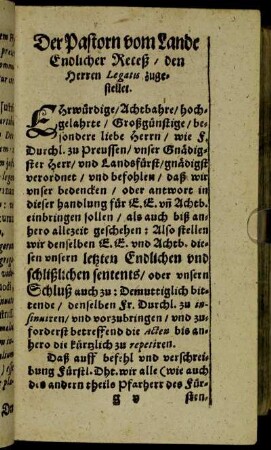 Der Pastorn vom Lande
Endlicher Receß / den
Herren Legatis zuge-
stellet.
EHrwürdige / Achtbahre / hoch-
gelahrte / Großgünstige / be-
sondere liebe Herrn / wie F.
Durchl. zu Preussen / vnser Gnädig-
ster Herr / vnd Landsfürst / gnädigst
verordnet / vnd befohlen / daß wir
vnser bedencken / oder antwort in
dieser handlung für E. E. vñ Achtb.
einbringen sollen / als auch biß an-
hero allezeit geschehen: Also stellen
wir denselben E. E. vnd Achtb. die-
sen vnsern letzten Endlichen vnd
schlißlichen sentents / oder vnsern
Schluß auch zu: Demuttiglich bit-
tende / denselben Fr. Durchl. zu in-
sinuiren / vnd vorzubringen / vnd zu-
forderst betreffend die Acten bis an-
hero die kürtzlich zu repetiren.
Daß auff befehl vnd verschrei-
bung Fürstl. Dht. wir alle (wie auch
des andern theils Pfarherr des Für-
g v
sten,